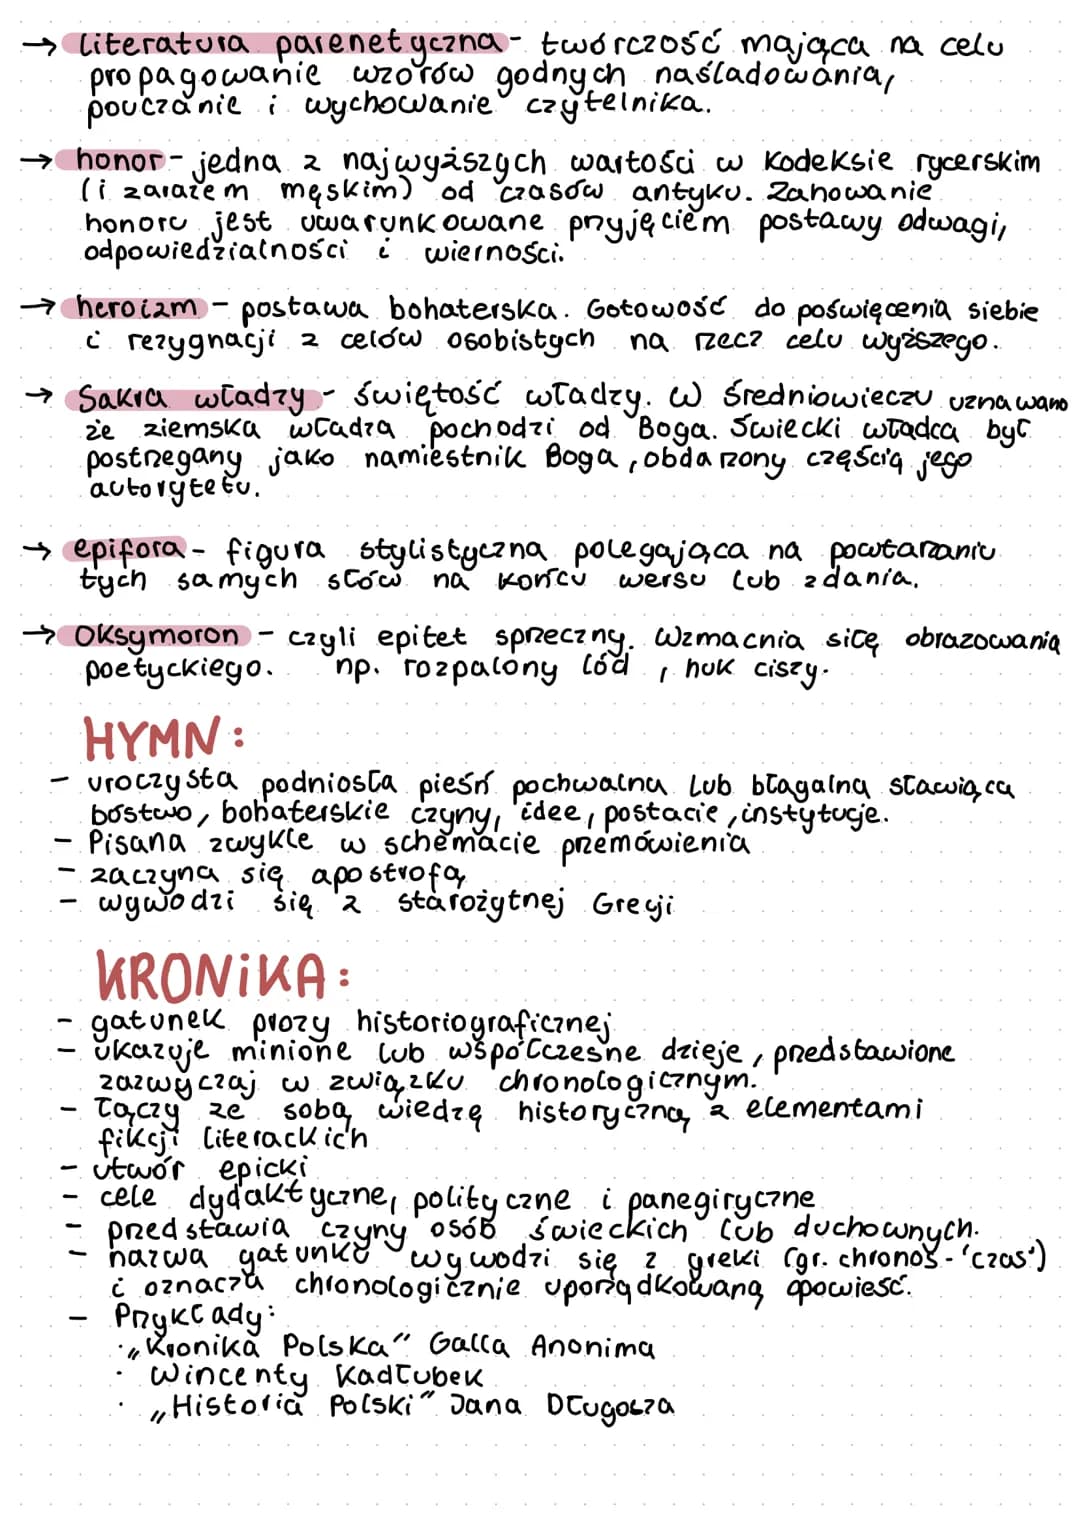 → literatura parenetyczna - twórczość mająca na celu
propagowanie wzorów godnych naśladowania,
pouczanie i wychowanie czytelnika.
→ honor - jedna z najwyższych wartości w kodeksie rycerskim
(i zarazem męskim) od czasów antyku. Zahowanie
honoru jest uwarunkowane przyjęciem postawy odwagi,
odpowiedzialności i wierności.
→ heroizm - postawa bohaterska. Gotowość do poświęcenia siebie
i rezygnacji z celów osobistych na rzecz celu wyższego.
→ Sakra władzy - świętość władzy. W średniowieczu uznawano
że ziemska władza pochodzi od Boga. Świecki władca był
postrzegany jako namiestnik Boga, obdarzony częścią jego
autorytetu.
→ epifora - figura stylistyczna polegająca na powtarzaniu
tych samych słów na końcu wersu lub zdania.
→ Oksymoron - czyli epitet sprzeczny. Wzmacnia siłę obrazowania
poetyckiego. np. rozpalony lód, huk ciszy.
HYMN:
- uroczysta podniosła pieśń pochwalna lub błagalna sławiąca
bóstwo, bohaterskie czyny, idee, postacie, instytucje.
- Pisana zwykle w schemacie przemówienia
- zaczyna się apostrofą
- wywodzi się z starożytnej Grecji
KRONiKA:
- gatunek prozy historiograficznej
- ukazuje minione lub współczesne dzieje, przedstawione
zazwyczaj w związku chronologicznym.
- Łączy ze sobą wiedzę historyczną z elementami
fikcji literackich
- utwór epicki
- cele dydaktyczne, polityczne i panegiryczne
- przedstawia czyny osób świeckich lub duchownych.
- nazwa gatunku wywodzi się z greki (gr. chronos - 'czas')
i oznacza chronologicznie uporządkowaną opowieść.
- Przykłady:
· „Kronika Polska" Galla Anonima
· Wincenty Kadłubek
· „Historia Polski" Jana Długosza